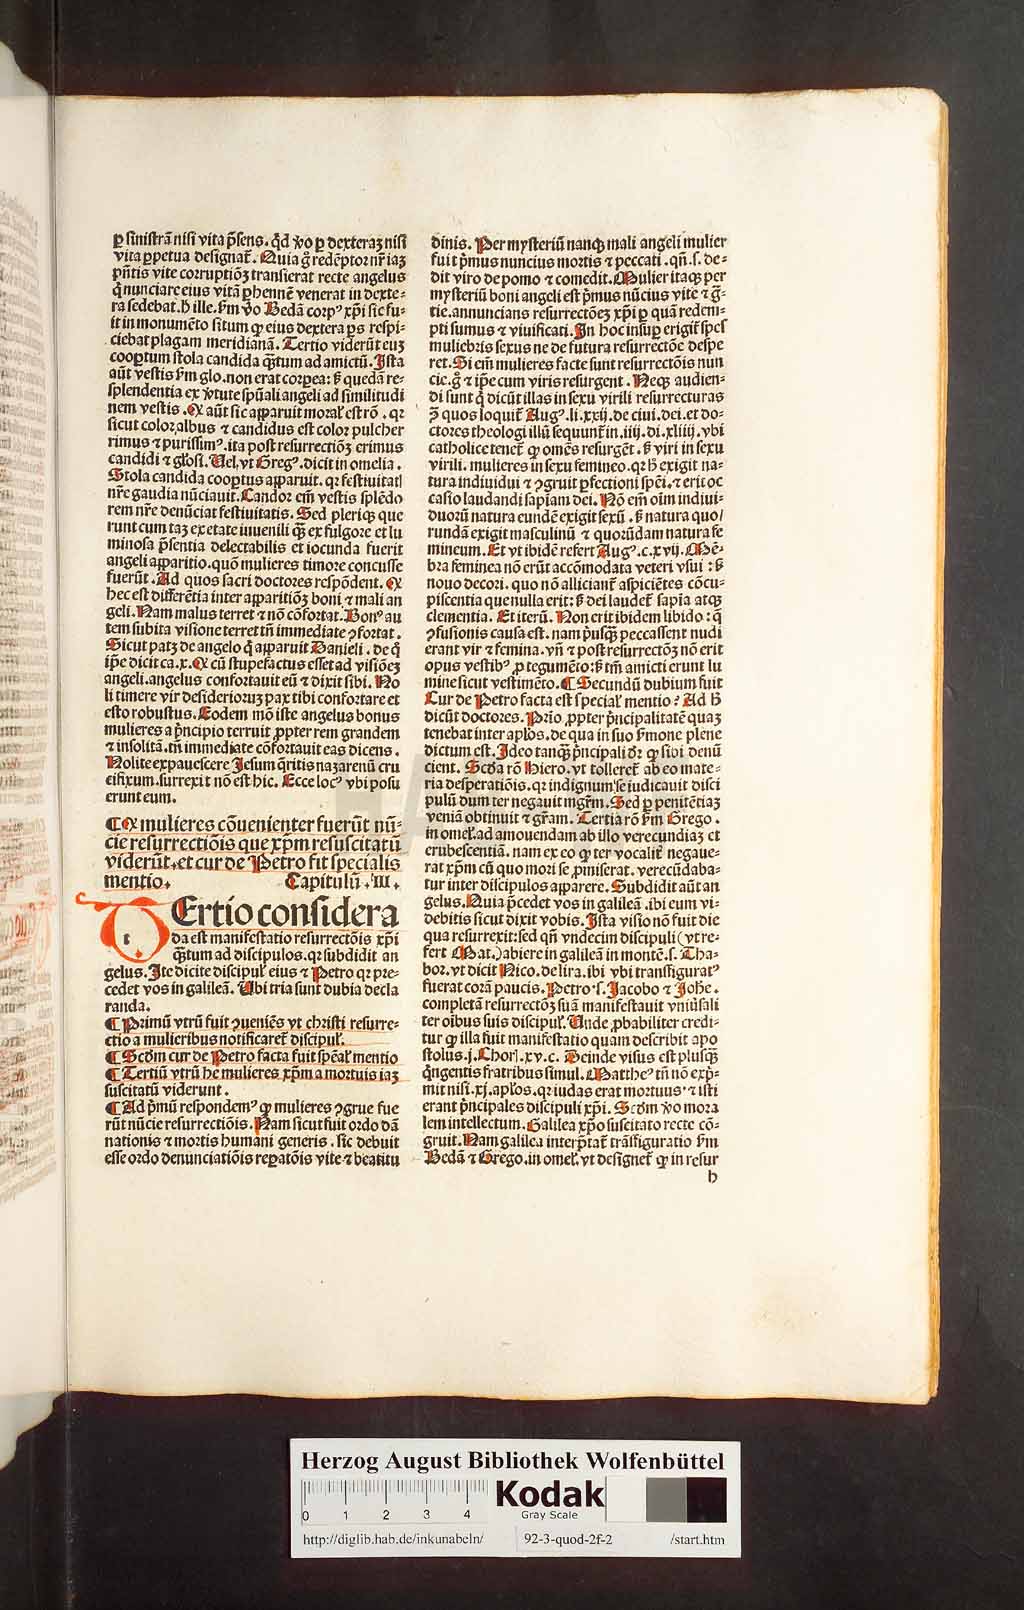 ꝑ sinistrã nisi vita p̃sens. q̃d ꝟo ꝑ dexteraꝫ nisi
vita ꝑpetua designat᷑. Quia g̊ redẽptor nr̃ iaꝫ
p̃ntis vite corruptiõꝫ transierat recte angelus
q̃ nunciare eius vitã ꝑhennẽ venerat in dexte⸗
ra sedebat. h̃ ille. s̃m ꝟo Bedã corpꝰ xp̃i sic fu⸗
it in monumẽto situm ꝙ eius dextera ꝑs respi⸗
ciebat plagam meridianã. Tertio viderũt euꝫ
cooꝑtum stola candida q̃ꝫtum ad amictũ. Ista
aũt vestis s̃m glo. non erat corꝑea: ꝭ quedã re⸗
splendentia ex ꝟtute spũali angeli ad similitudi
nem vestis. Ꝙ aũt sic apparuit moral᷑ est rõ. qꝛ
sicut color albus ⁊ candidus est color pulcher
rimus ⁊ purissimꝰ. ita post resurrectiõꝫ erimus
candidi ⁊ gl̃osi. Uel vt Gregꝰ. dicit in omelia.
Stola candida cooꝑtus apparuit. qꝛ festiuitatꝭ
nr̃e gaudia nũciauit. Candor em̃ vestis splẽdo
rem nr̃e denũciat festiuitatis. Sed pleriqꝫ que
runt cum taꝫ ex etate iuuenili q̃ꝫ ex fulgore et lu
minosa p̃sentia delectabilis et iocunda fuerit
angeli apparitio. quõ mulieres timore concusse
fuerũt. Ad quos sacri doctores respõdent. Ꝙ
hec est differẽtia inter apparitiõꝫ boni ⁊ mali an
geli. Nam malus terret ⁊ nõ cõfortat. Bonꝰ au
tem subita visione terret tñ immediate ↄfortat.
Sicut patꝫ de angelo q̃ apparuit Danieli. de q̃
ip̃e dicit ca. x. Ꝙ cũ stupefactus esset ad visiõeꝫ
angeli. angelus confortauit eũ ⁊ dixit sibi. No
li timere vir desideriorum pax tibi confortare et
esto robustus. Eodem mõ iste angelus bonus
mulieres a p̃ncipio terruit ꝓpter rem grandem
⁊ insolitã. tñ immediate cõfortauit eas dicens.
Nolite expauescere Jesum q̃ritis nazarenũ cru
cifixum. surrexit nõ est hic. Ecce locꝰ vbi posu
erunt eum.
¶ Ꝙ mulieres cõuenienter fuerũt nũ⸗
cie resurrectiõis que xp̃m resuscitatũ
viderũt. et cur de Petro fit specialis
mentio. Capitulũ. III.
t
Ertio considera
da est manifestatio resurrectõis xp̃i
q̃ꝫtum ad discipulos. qꝛ subdidit an
gelus. Ite dicite discipul᷑ eius ⁊ Petro qꝛ pre⸗
cedet vos in galileã. Ubi tria sunt dubia decla
randa.
¶ Primũ vtrũ fuit ↄueniẽs vt christi resurre⸗
ctio a mulieribus notificaret᷑ discipul᷑.
¶ Scd̃m cur de Petro facta fuit spẽal᷑ mentio
¶ Tertiũ vtrũ he mulieres xp̃m a mortuis iaꝫ
suscitatũ viderunt.
¶ Ad p̃mũ respondemꝰ ꝙ mulieres ↄgrue fue
rũt nũcie resurrectiõis. Nam sicut fuit ordo dã
nationis ⁊ mortis humani generis. sic debuit
esse ordo denunciatiõis reꝑatõis vite ⁊ beatitu
dinis. Per mysteriũ nanqꝫ mali angeli mulier
fuit p̃mus nuncius mortis ⁊ peccati. qñ. s. de⸗
dit viro de pomo ⁊ comedit. Mulier itaqꝫ per
mysteriũ boni angeli est p̃mus nũcius vite ⁊ g̃⸗
tie. annuncians resurrectõeꝫ xp̃i ꝑ quã redem⸗
pti sumus ⁊ viuificati. In hoc insuꝑ erigit᷑ spes
muliebris sexus ne de futura resurrectõe despe
ret. Si em̃ mulieres facte sunt resurrectõis nun
cie. g̊ ⁊ ip̃e cum viris resurgent. Neqꝫ audien⸗
di sunt q̃ dicũt illas in sexu virili resurrecturas
ꝯtra quos loquit᷑ Augꝰ. li. xxij. de ciui. dei. et do⸗
ctores theologi illũ sequunt᷑ in. iiij. di. xliiij. vbi
catholice tenet᷑ ꝙ omẽs resurgẽt. ꝭ viri in sexu
virili. mulieres in sexu femineo. qꝛ h̃ exigit na⸗
tura indiuidui ⁊ ↄgruit ꝑfectioni sp̃ei. ⁊ erit oc
casio laudandi sapiam dei. Nõ em̃ oim indiui⸗
duorũ natura eundẽ exigit sexũ. ꝭ natura quo/
rundã exigit masculinũ ⁊ quorũdam natura fe
mineum. Et vt ibidẽ refert Augꝰ. c. xvij. Mẽ⸗
bra feminea nõ erũt accõmodata veteri vsui: ꝭ
nouo decori. quo nõ alliciant᷑ aspiciẽtes cõcu⸗
piscentia que nulla erit: ꝭ dei laudet᷑ sapĩa atqꝫ
clementia. Et iterũ. Non erit ibidem libido: q̃
ↄfusionis causa est. nam p̃usqꝫ peccassent nudi
erant vir ⁊ femina. vñ ⁊ post resurrectõꝫ nõ erit
opus vestibꝰ ꝓ tegumẽto: ꝭ tm̃ amicti erunt lu
mine sicut vestimẽto. ¶ Secundũ dubium fuit
Cur de Petro facta est special᷑ mentio? Ad h̃
dicũt doctores. Prĩo ꝓpter p̃ncipalitatẽ quaꝫ
tenebat inter apl̃os. de qua in suo s̃mone plene
dictum est. Ideo tanqꝫ p̃ncipali dr̃ ꝙ sibi denũ
cient. Scd̃a rõ Hiero. vt tolleret᷑ ab eo mate⸗
ria desperatiõis. qꝛ indignum se iudicauit disci
pulũ dum ter negauit mgr̃m. Sed ꝑ penitẽtiaꝫ
veniã obtinuit ⁊ gr̃am. Tertia rõ s̃m Grego.
in omel᷑. ad amouendam ab illo verecundiaꝫ et
erubescentiã. nam ex eo ꝙ ter vocalit᷑ negaue⸗
rat xp̃m cũ quo mori se ꝓmiserat. verecũdaba⸗
tur inter discipulos apparere. Subdidit aũt an
gelus. Quia p̃cedet vos in galileã. ibi eum vi⸗
debitis sicut dixit vobis. Ista visio nõ fuit die
qua resurrexit: sed qñ vndecim discipuli (vt re⸗
fert Mat.) abiere in galileã in montẽ. s. Tha⸗
bor. vt dicit Nico. de lira. ibi vbi transfiguratꝰ
fuerat corã paucis. Petro. s. Jacobo ⁊ Joh̃e.
completã resurrectõꝫ suã manifestauit vniũsali
ter oibus suis discipul᷑. Unde ꝓbabiliter credi⸗
tur ꝙ illa fuit manifestatio quam describit apo
stolus. j. Choꝛꝭ. xv. c. Deinde visus est plusqꝫ
q̃ngentis fratribus simul. Mattheꝰ tñ nõ exp̃⸗
mit nisi. xj. apl̃os. qꝛ iudas erat mortuus. ⁊ isti
erant p̃ncipales discipuli xp̃i. Scd̃m ꝟo mora
lem intellectum. Galilea xp̃o suscitato recte cõ⸗
gruit. Nam galilea interp̃tat᷑ trãsfiguratio s̃m
Bedã ⁊ Grego. in omel᷑. vt designet᷑ ꝙ in resur
h
Herzog August Bibliothek Wolfenbüttel
0 1 2 3 4
Kodak
Gray Scale
http://diglib.hab.de/inkunabeln/ 92-3-quod-2f-2 /start.htm